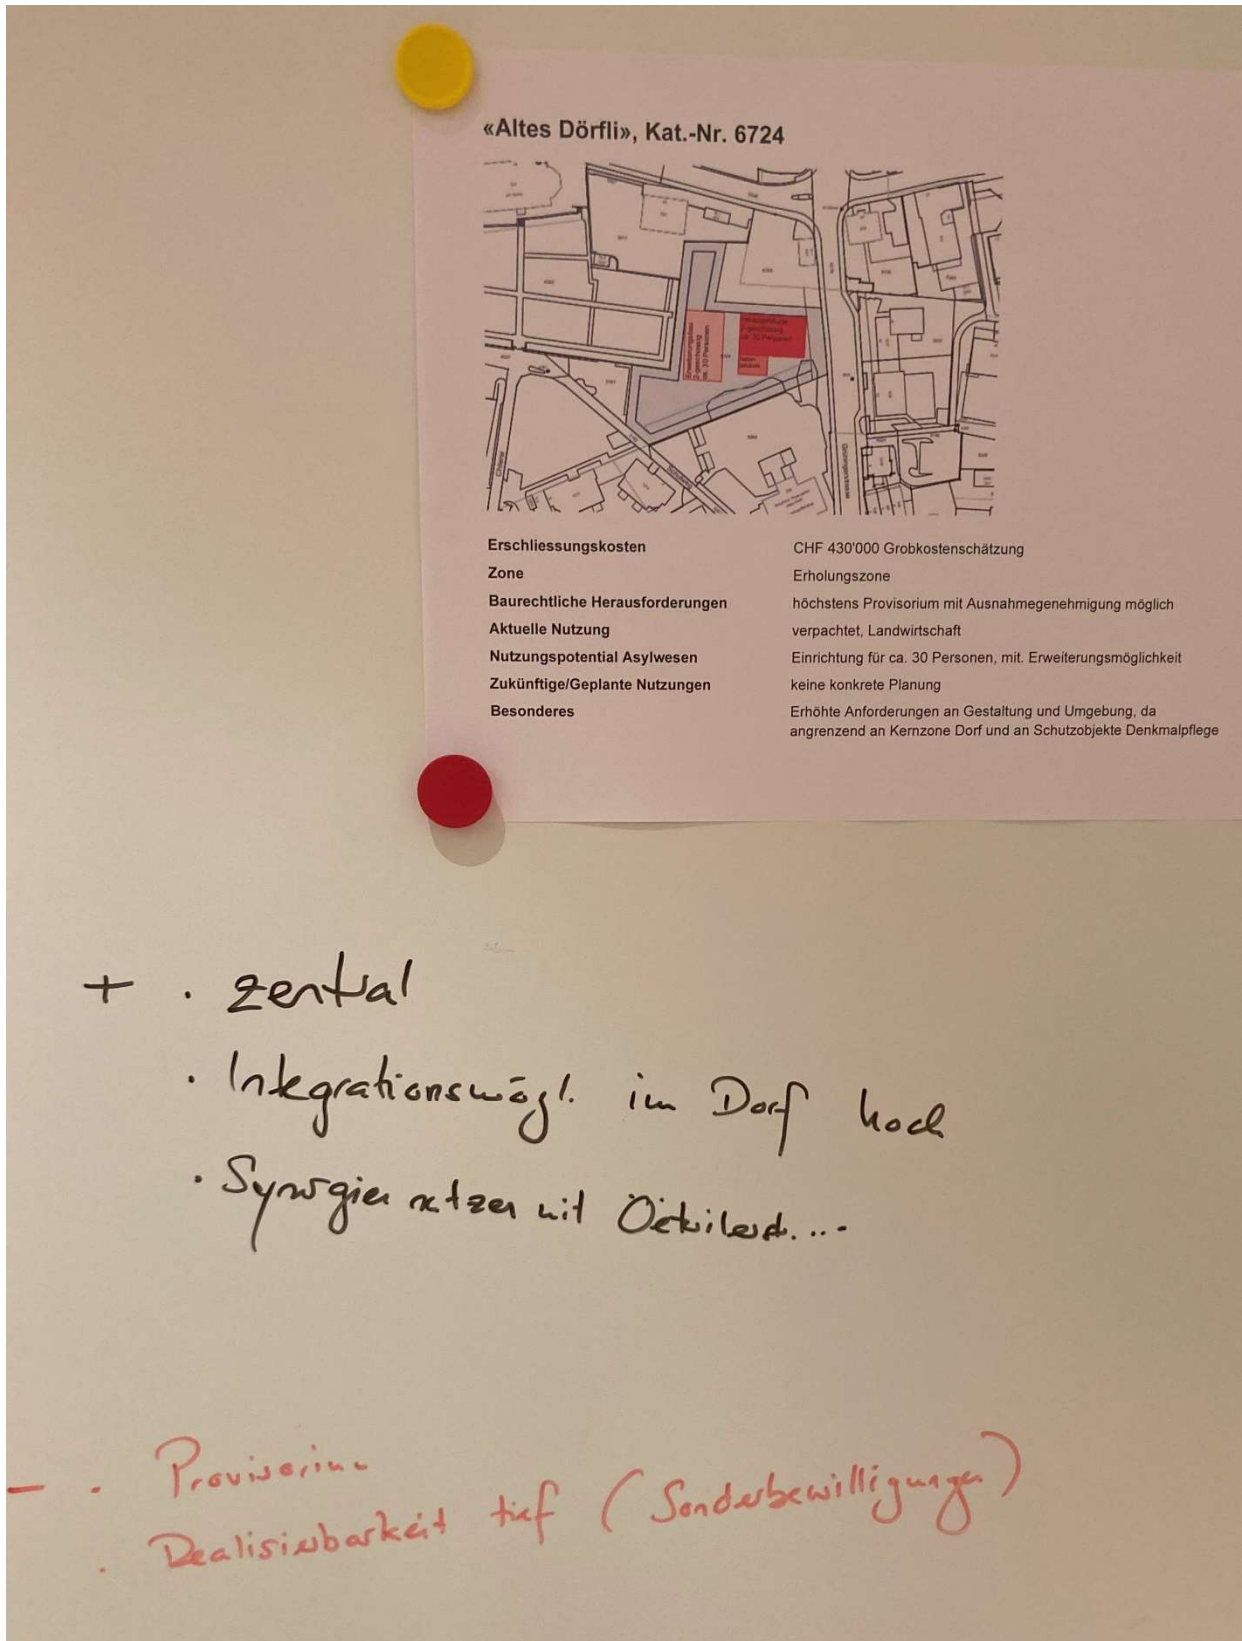 «Altes Dörfli», Kat.-Nr. 6724
Erweiterungsbau
2-geschossig
ca. 30 Personen
2-geschossig
ca. 30 Personen
Erschliessungskosten CHF 430'000 Grobkostenschätzung
Zone Erholungszone
Baurechtliche Herausforderungen höchstens Provisorium mit Ausnahmegenehmigung möglich
Aktuelle Nutzung verpachtet, Landwirtschaft
Nutzungspotential Asylwesen Einrichtung für ca. 30 Personen, mit. Erweiterungsmöglichkeit
Zukünftige/Geplante Nutzungen keine konkrete Planung
Besonderes Erhöhte Anforderungen an Gestaltung und Umgebung, da
angrenzend an Kernzone Dorf und an Schutzobjekte Denkmalpflege
+ · zentral
· Integrationsmögl. im Dorf hoch
· Synergien nutzen mit
- · Provisorium
· Realisierbarkeit tief (Sonderbewilligungen)